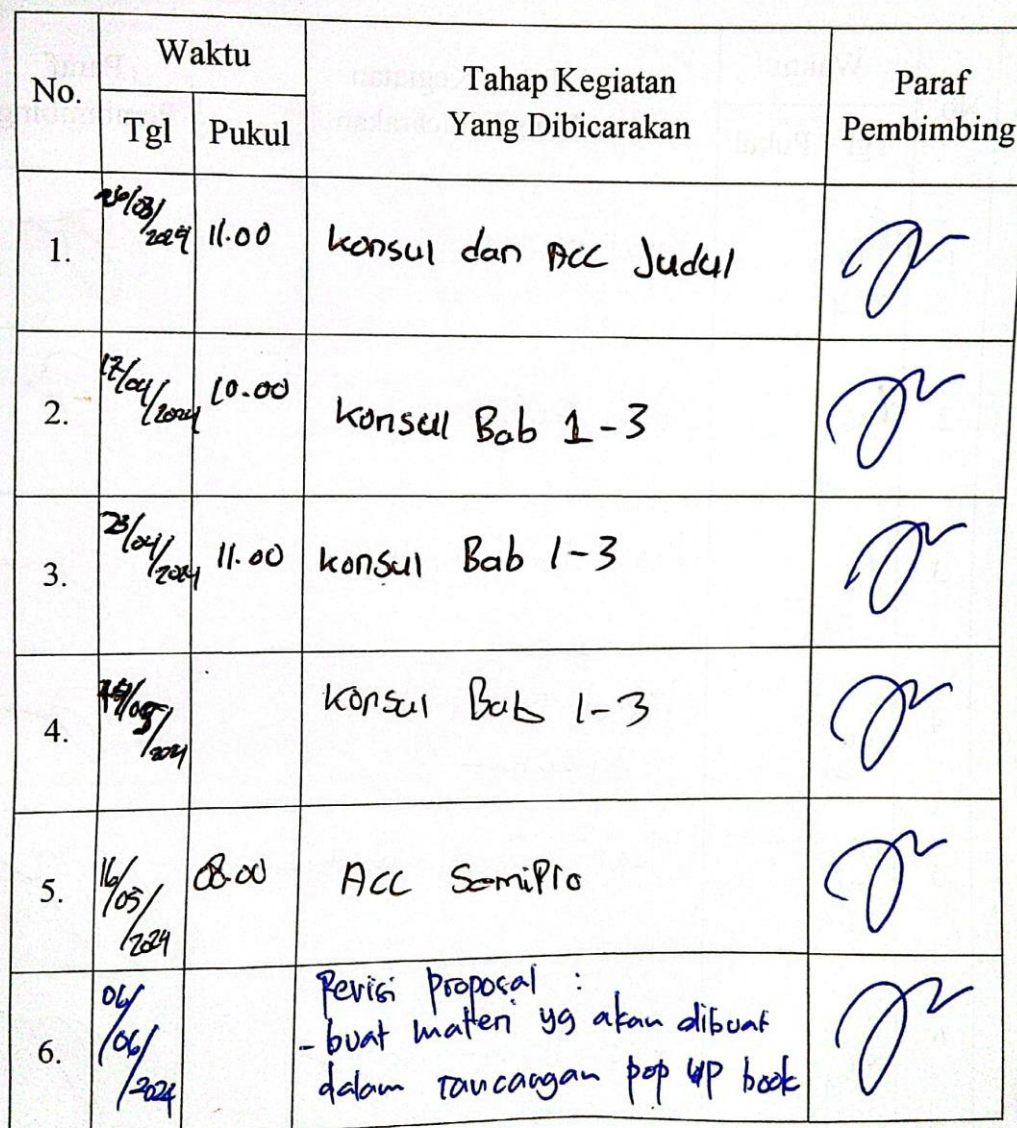 No. Waktu Tahap Kegiatan Paraf
Tgl Pukul Yang Dibicarakan Pembimbing
1. 11.00 Konsul dan ACC Judul
2. 17/04/2024 10.00 Konsul Bab 1-3
3. 23/04/2024 11.00 Konsul Bab 1-3
4. Konsul Bab 1-3
5. 16/05/2024 08.00 ACC SemiPro
6. 06/06/2024 Revisi proposal :
- buat materi yg akan dibuat
dalam rancangan pop up book